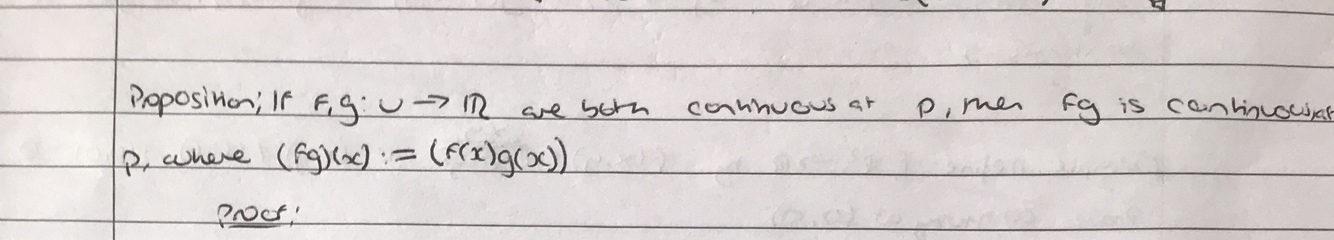 Proposition; If f,g: U → ℝ are both continuous at p, then fg is continuous at
p, where (fg)(x) := (f(x)g(x))
Proof: